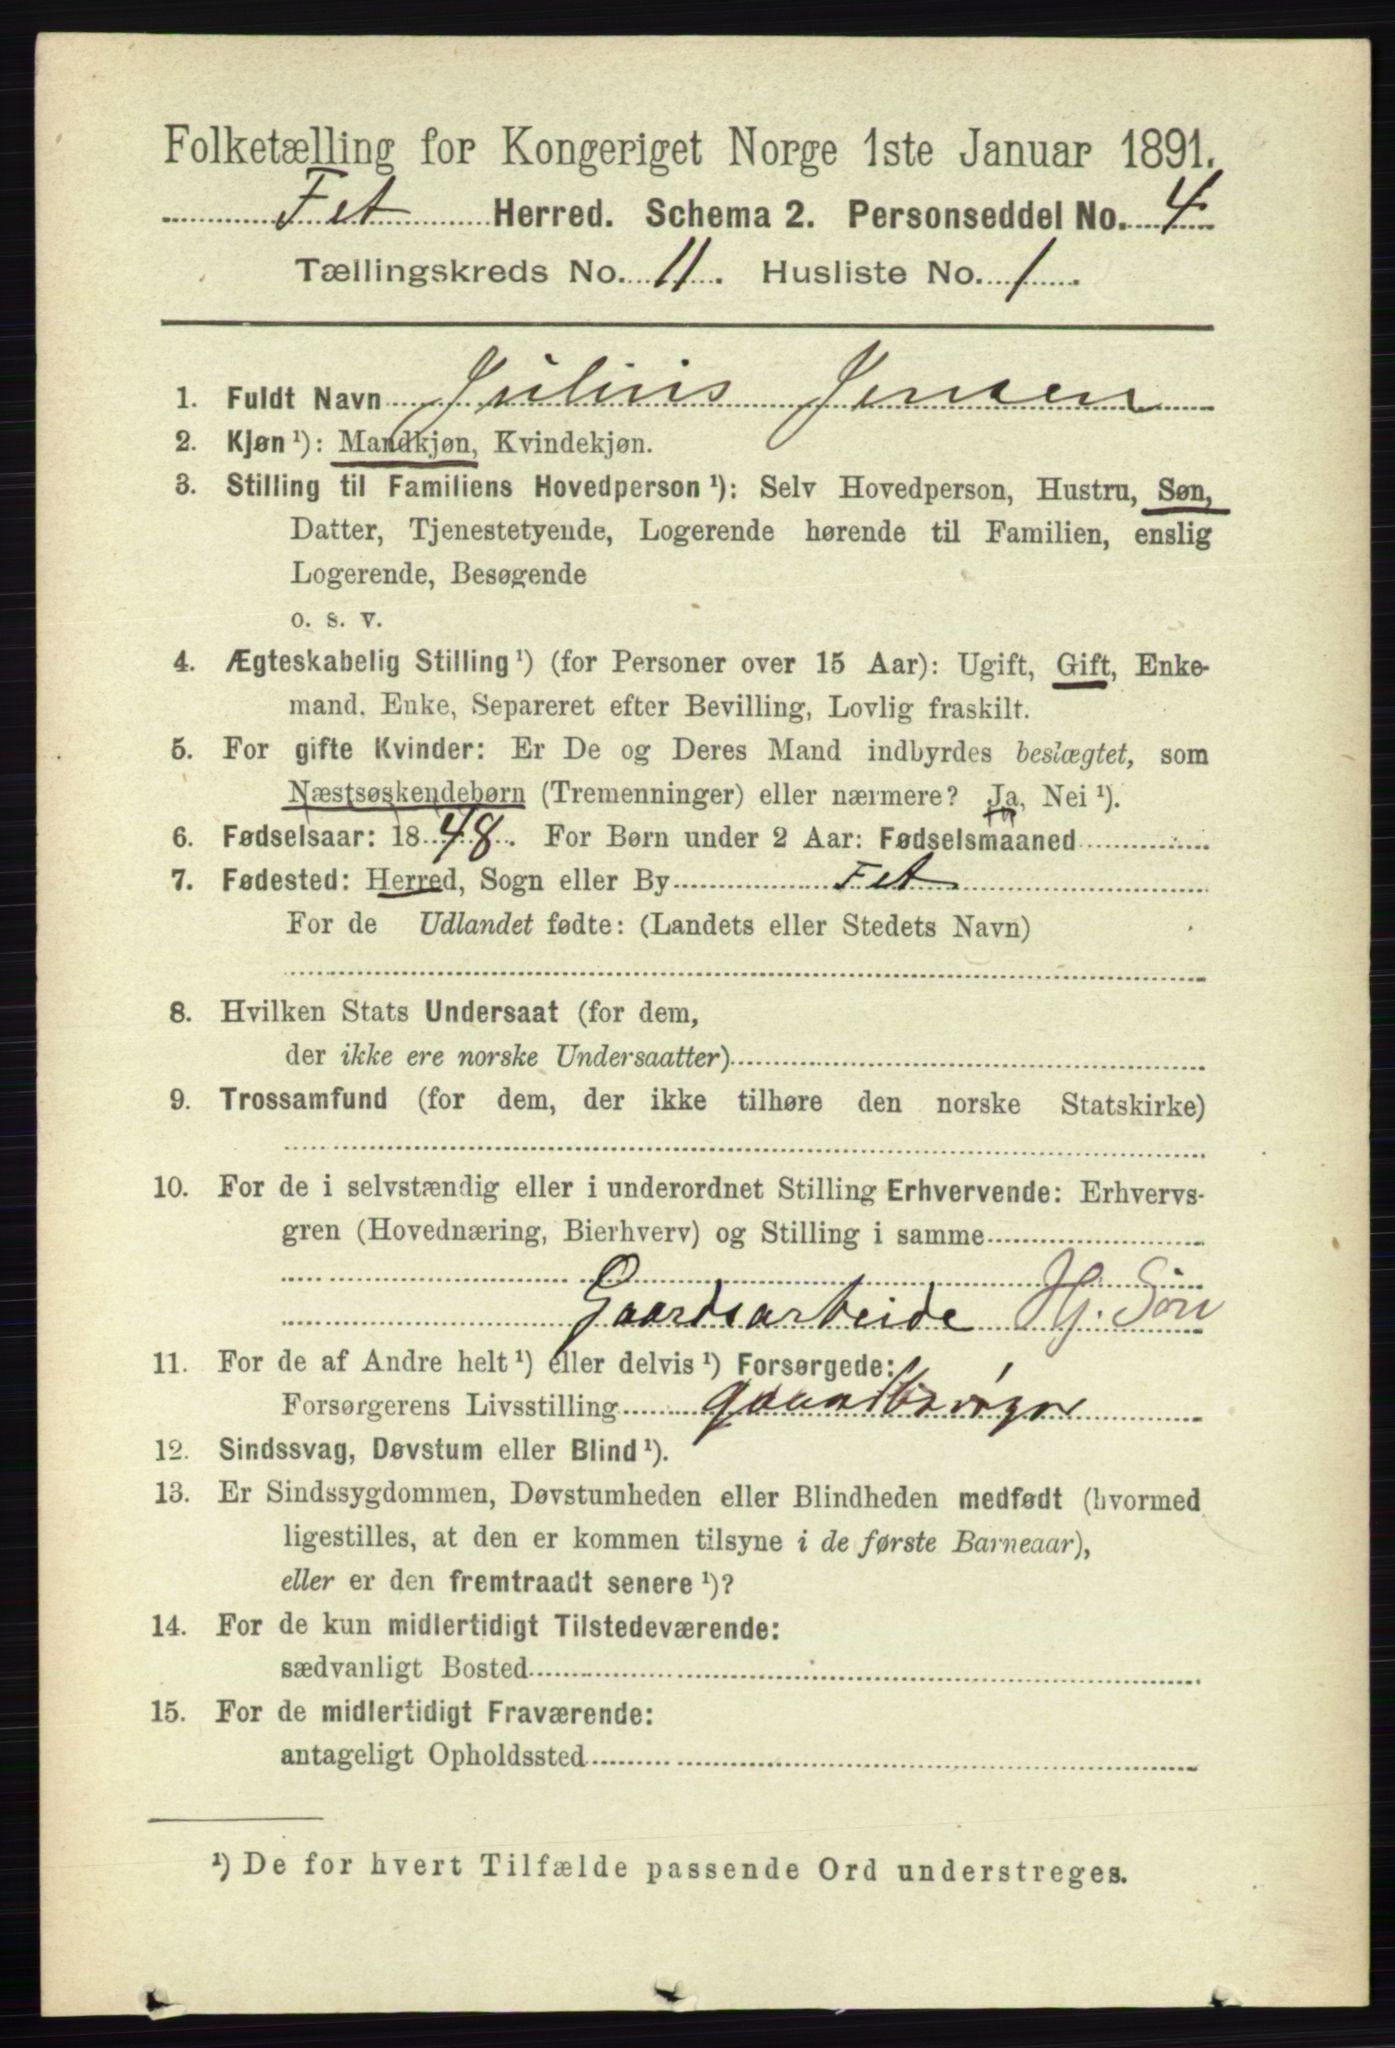 Folketælling for Kongeriget Norge 1ste Januar 1891.
Fet Herred. Schema 2. Personseddel No. 4
Tællingskreds No. 11. Husliste No. 1.
1. Fuldt Navn Julius Jensen
2. Kjøn ¹): Mandkjøn, Kvindekjøn.
3. Stilling til Familiens Hovedperson ¹): Selv Hovedperson, Hustru, Søn,
Datter, Tjenestetyende, Logerende hørende til Familien, enslig
Logerende, Besøgende
o. s. v.
4. Ægteskabelig Stilling ¹) (for Personer over 15 Aar): Ugift, Gift, Enke-
mand, Enke, Separeret efter Bevilling, Lovlig fraskilt.
5. For gifte Kvinder: Er De og Deres Mand indbyrdes beslægtet, som
Næstsøskendebørn (Tremenninger) eller nærmere? Ja, Nei ¹).
6. Fødselsaar: 1848. For Børn under 2 Aar: Fødselsmaaned
7. Fødested: Herred, Sogn eller By Fet
For de Udlandet fødte: (Landets eller Stedets Navn)
8. Hvilken Stats Undersaat (for dem,
der ikke ere norske Undersaatter)
9. Trossamfund (for dem, der ikke tilhøre den norske Statskirke)
10. For de i selvstændig eller i underordnet Stilling Erhvervende: Erhvervs-
gren (Hovednæring, Bierhverv) og Stilling i samme
Gaardsarbeide Hj. Søn
11. For de af Andre helt ¹) eller delvis ¹) Forsørgede:
Forsørgerens Livsstilling gaardbruger
12. Sindssvag, Døvstum eller Blind ¹).
13. Er Sindssygdommen, Døvstumheden eller Blindheden medfødt (hvormed
ligestilles, at den er kommen tilsyne i de første Barneaar),
eller er den fremtraadt senere ¹)?
14. For de kun midlertidigt Tilstedeværende:
sædvanligt Bosted
15. For de midlertidigt Fraværende:
antageligt Opholdssted
¹) De for hvert Tilfælde passende Ord understreges.